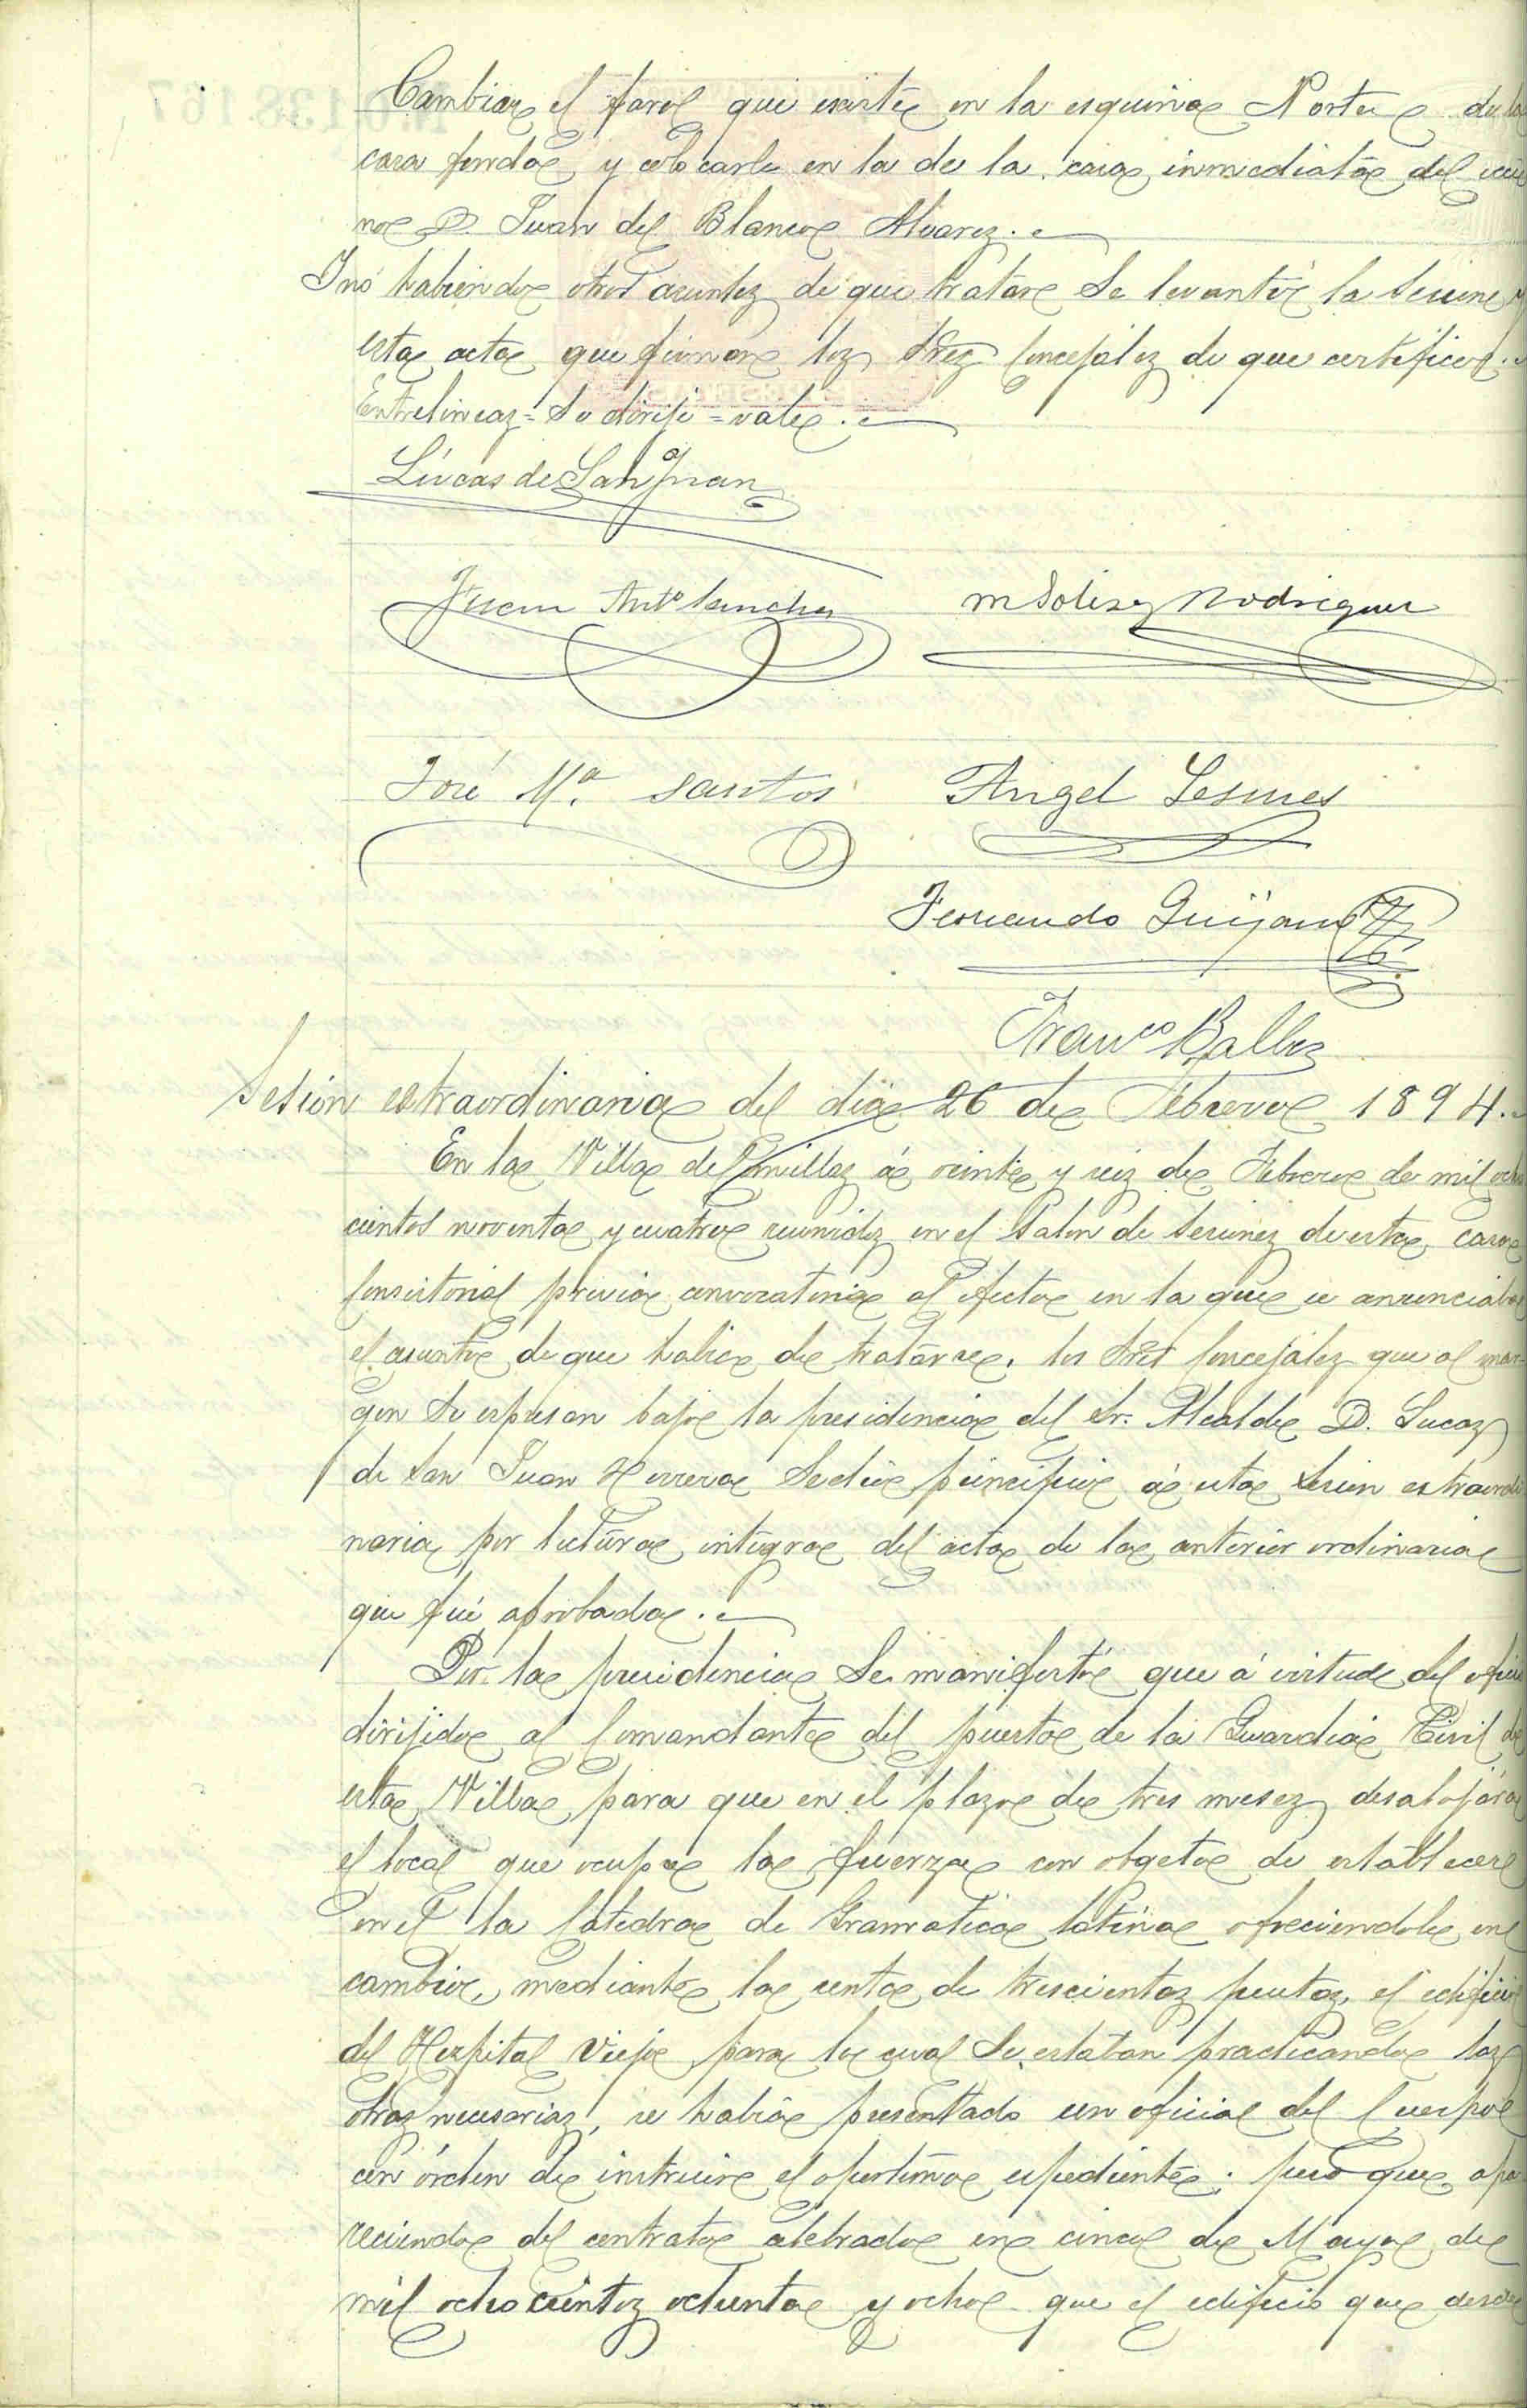 Cambiar el farol que existe en la esquina Norte de la
casa fonda y colocarle en la de la casa inmediata del veci
no D. Juan del Blanco Alvarez.
Y nó habiendo otros asuntos de que tratar se levantó la sesion y
esta acta que firman los Sres Concejales de que certifico.
Entrelineas = Se dirije = vale.
Lúcas de San Juan
Juan Antº Sanchez
M Solis y Rodriguez
José Mª Santos
Angel Lesmes
Fernando Quijano
Franco Balbas
Sesión estraordinaria del dia 26 de Febrero 1894.
En la Villa de Comillas á veinte y seis de Febrero de mil ocho
cientos noventa y cuatro reunidos en el Salon de sesiones de esta casa
Consistorial previa convocatoria al efecto en la que se anunciaba
el asunto de que habia de tratarse, los Sres Concejales que al mar-
gen se espresan bajo la presidencia del Sr. Alcalde D. Lucas
de San Juan Herrera se dió principio á esta sesion estraordi
naria por lectura integra del acta de la anterior ordinaria
que fué aprobada.
Por la presidencia se manifestó que á virtud del oficio
dirijido al Comandante del puesto de la Guardia Civil de
esta Villa para que en el plazo de tres meses desalojára
el local que ocupa la fuerza con objeto de establecer
en él la Catedra de Gramatica latina ofreciendole en
cambio, mediante la renta de trescientas pesetas, el edificio
del Hospital Viejo para lo cual se estaban practicando las
obras necesarias, se habia presentado un oficial del Cuerpo
con órden de instruir el oportuno espediente; pero que apa
reciendo del contrato celebrado en cinco de Mayo de
mil ochocientos ochenta y ocho que el edificio que desde